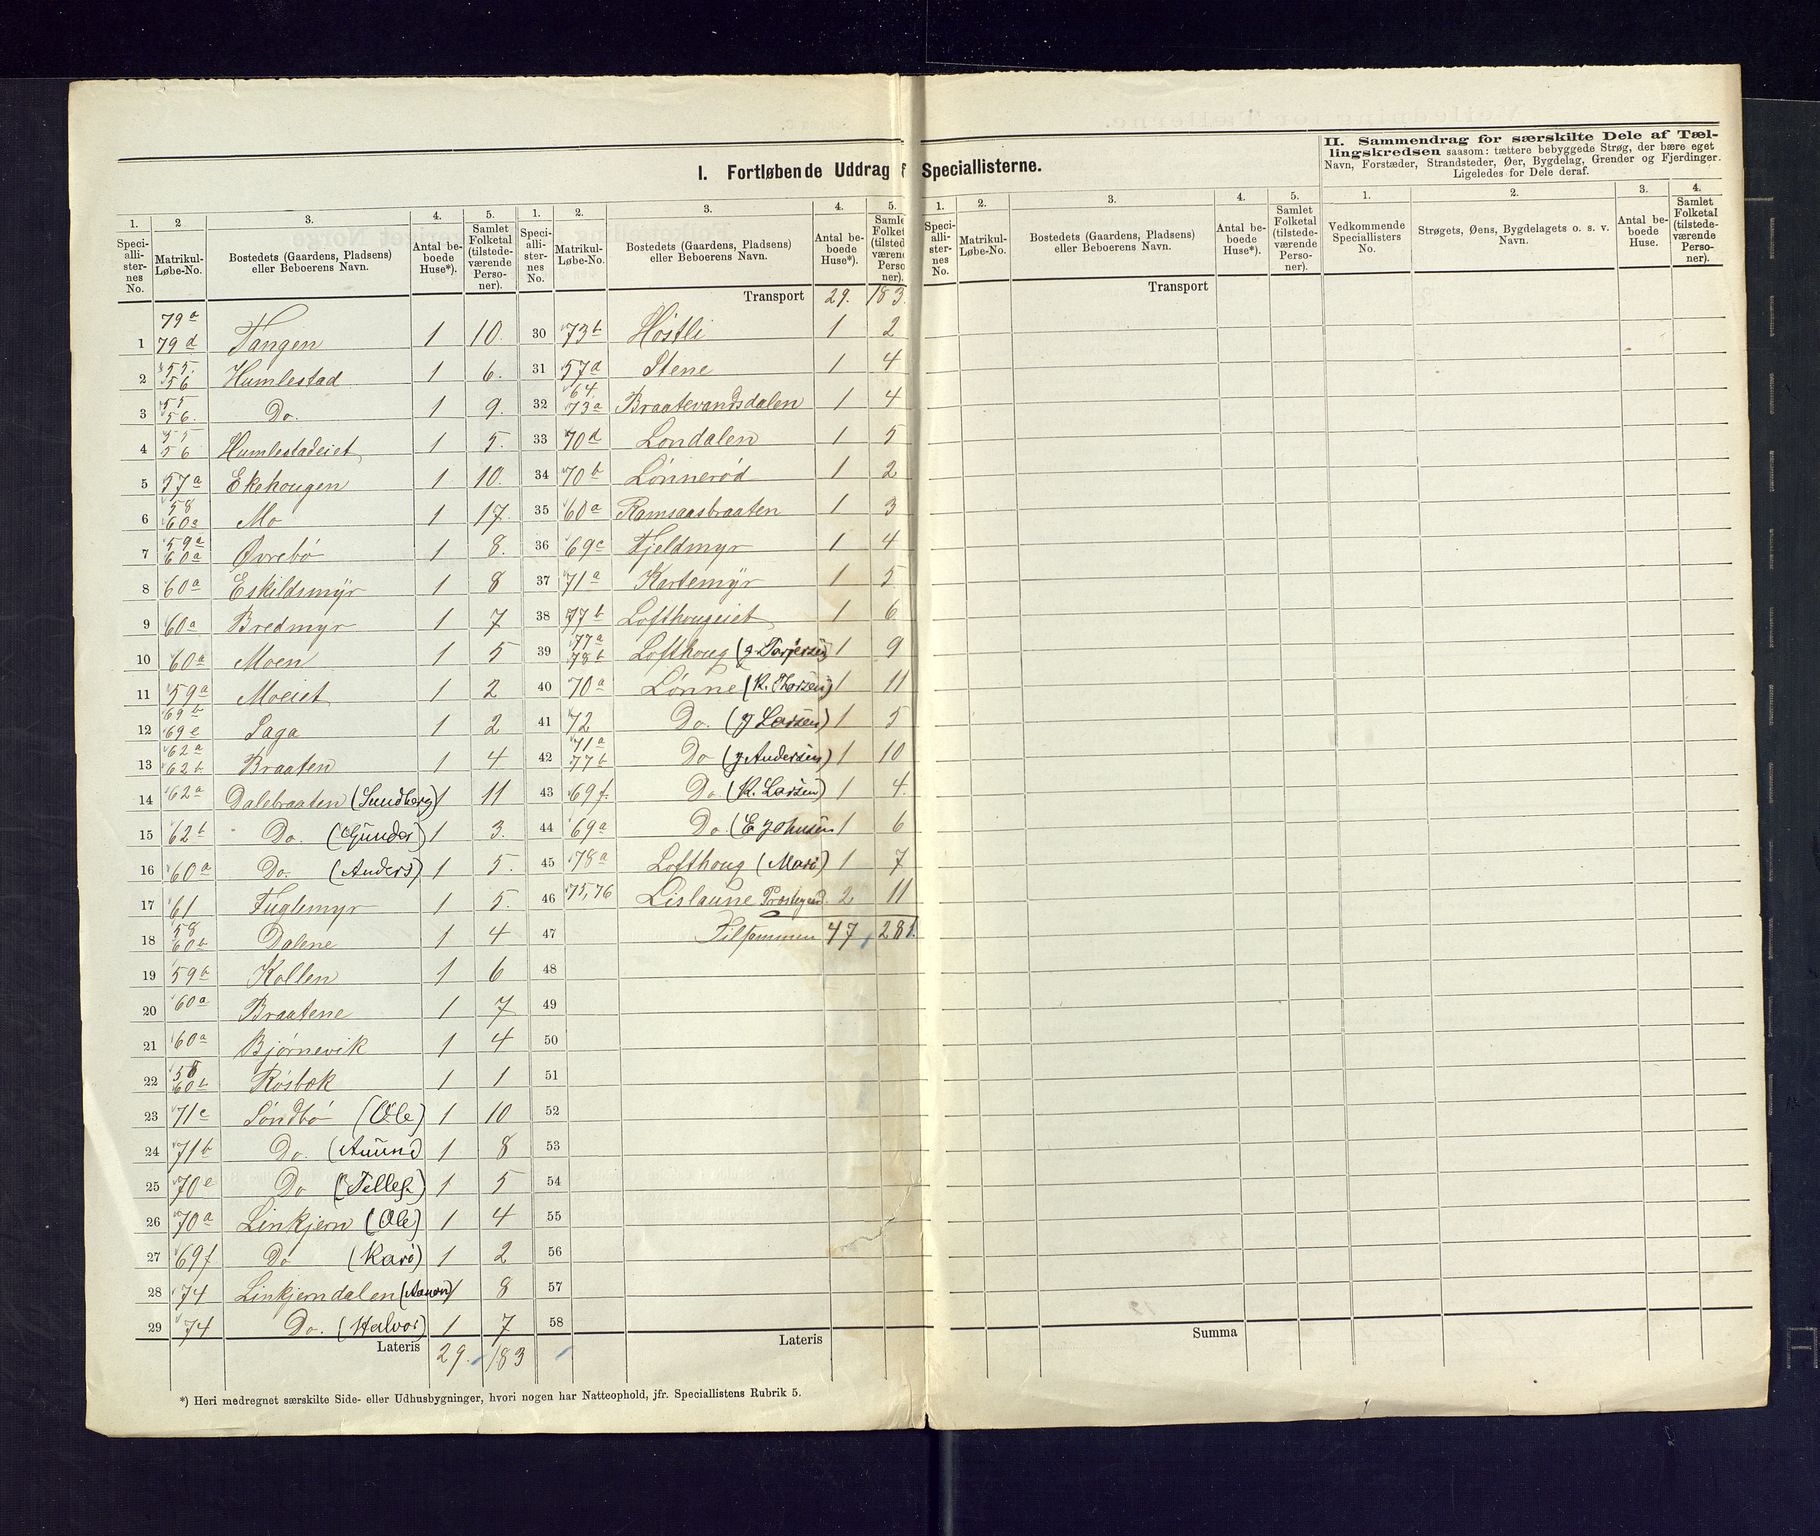 I. Fortløbende Uddrag f Speciallisterne.
II. Sammendrag for særskilte Dele af Tæl-
lingskredsen saasom: tættere bebyggede Strøg, der bære eget
Navn, Forstæder, Strandsteder, Øer, Bygdelag, Grender og Fjerdinger.
Ligeledes for Dele deraf.
1. 2 3. 4. 5. 1. 2. 3. 4. 5. 1. 2. 3. 4. 5. 1. 2. 3. 4.
Speciallisternes No. Matrikul-Løbe-No. Bostedets (Gaardens, Pladsens) eller Beboerens Navn. Antal beboede Huse*). Samlet Folketal (tilstedeværende Personer).
Speciallisternes No. Matrikul-Løbe-No. Bostedets (Gaardens, Pladsens) eller Beboerens Navn. Antal beboede Huse*). Samlet Folket (tilstedeværende Perso ner).
Speciallisternes No. Matrikul-Løbe-No. Bostedets (Gaardens, Pladsens) eller Beboerens Navn. Antal beboede Huse*). Samlet Folketal (tilstedeværende Personer).
Vedkommende Speciallisters No. Strøgets, Øens, Bygdelagets o. s. v. Navn. Antal beboede Huse. Samlet Folketal (tilstedeværende Personer).
1 79a 79d Tangen 1 10.
2 55. 56 Humlestad 1 6.
3 55 56. Do. 1 9.
4 55 56 Humlestadeiet 1 5.
5 57a Ekehougen 1 10.
6 58 60a Mo 1 17.
7 59a 60a Øvrebö 1 8.
8 60a Eskildsmyr 1 8
9 60a Bredmyr 1 7
10 60a Moen 1 5
11 59a Moeiet 1 2
12 69b 69e Saga 1 2
13 62a 62b Braaten 1 4
14 62a Dalebraaten (Sundberg) 1 11
15 62b Do. (Gunder) 1 3.
16 60a Do. (Anders) 1 5.
17 61 Fuglemyr 1 5.
18 58 60b Dalene 1 4
19 59b Kollen 1 6
20 60a Braatene 1 7
21 60a Bjørnevik 1 4
22 58 60b Røsbæk 1 1
23 71c Söndbö (Ole) 1 10
24 71b Do. (Amund) 1 8
25 70e Do (Tellef.) 1 5
26 70a Linkjern (Ole) 1 4
27 69f Do (Kari) 1 2
28 74 Linkjerndalen (Aanon) 1 8
29 74 Do. (Halvor) 1 7
Lateris 29. 183
Transport 29. 183
30 73b Höstli 1 2
31 57d Stene 1 4
32 64. 73a Braatevandsdalen 1 4
33 70d Løndalen 1 5
34 70b Lønnerød 1 2
35 60a Ramsaasbraaten 1 3
36 69c Fjeldmyr 1 4
37 71a Kartemyr 1 5
38 77b Lofthougeiet 1 6
39 77a 78b Lofthoug (J Torjersen) 1 9
40 70a Lønne (K. Thorsen) 1 11
41 72 Do. (J Larsen) 1 5
42 71a 77b Do (J Andersen) 1 10
43 69f. Do (K. Larsen) 1 4.
44 69a Do. (E Johnsen 1 6
45 78a Lofthoug (Mari) 1 7
46 75, 76 Lislaune Præstegaard. 2 11
47 Tilsammen 47 281.
48
49
50
51
52
53
54
55
56
57
58
Lateris
Transport
Summa
*) Heri medregnet særskilte Side- eller Udhusbygninger, hvori nogen har Natteophold, jfr. Speciallistens Rubrik 5.